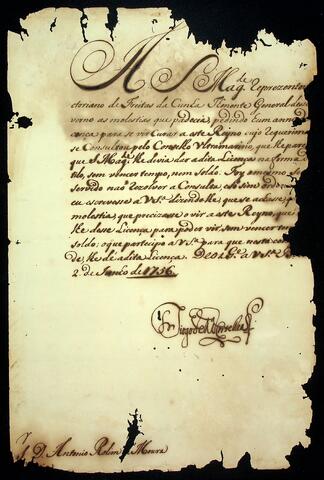 A S. Mag.de Reprezentou
ctoriano de Freitas da Cunha Thenente General des
verno as molestias que padecia, pedindo hum anno de
cença para se vir curar a este Reyno cujo Requerim
se Consultou pelo Conselho Ultramarino, que lhe parec
que S. Mag.de lhe devia dar a dita Licença na forma
tilo, sem vencer tempo, nem soldo. Foy o mesmo S.
servido não Rezolver a Consulta, e só sim ordenou
eu escrevesse a V.S.ª dizendo lhe que se achasse
molestia que precizasse vir a este Reyno, que
lhe desse Licença para poder vir, sem vencer tem
soldo: o que participo a V.S.ª para que nesta confor
de lhe dê a dita Licença. Deos g.de a V.S.ª
2. de Junho de 1756
Diogo de M Corte Real
S.r D. Antonio Rolim de Moura